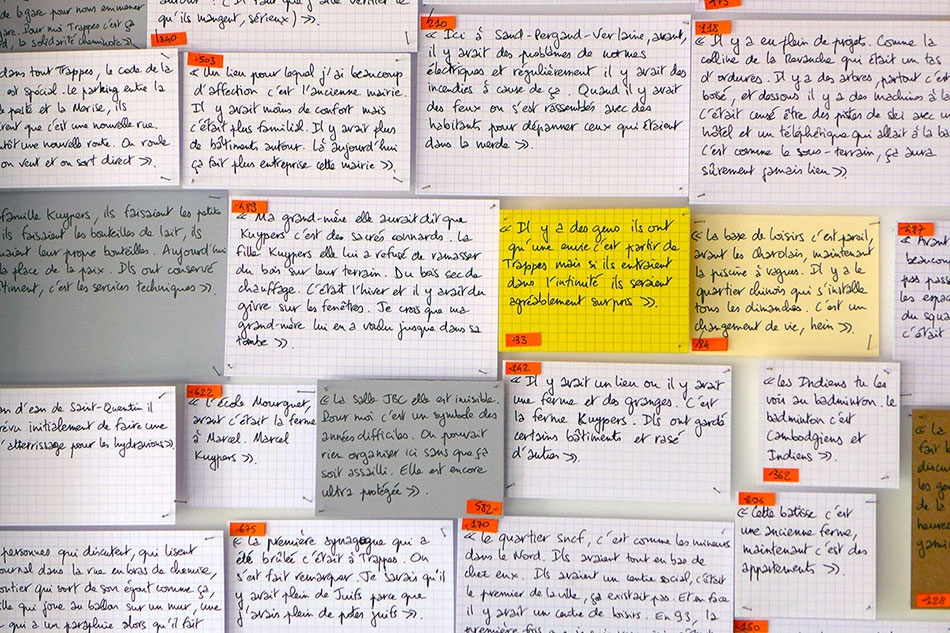 la gare pour nous emmener
gare. Pour moi Trappes c'est ça
la solidarité cheminote ».
qu'ils mangent, sérieux) ».
1340
dans tout Trappes, le code de la
est spécial. Le parking entre la
poste et la Mairie, ils
que c'est une nouvelle rue.
une nouvelle route. On roule
on veut et on sort direct ».
-503
« Un lieu pour lequel j'ai beaucoup
d'affection c'est l'ancienne mairie.
Il y avait moins de confort mais
c'était plus familial. Il y avait plus
de bâtiments autour. Là aujourd'hui
ça fait plus entreprise cette mairie ».
-210
« Ici à Sand-Pergaud-Verlaine, avant,
il y avait des problèmes de normes
électriques et régulièrement il y avait des
incendies à cause de ça. Quand il y avait
des feux on s'est rassemblés avec des
habitants pour dépanner ceux qui étaient
dans la merde ».
-175
-118
« Il y a eu plein de projet. Comme la
colline de la Revanche qui était un tas
d'ordures. Il y a des arbres, partout c'est
boisé, et dessous il y a des machines à la
C'était censé être des pistes de ski avec un
hôtel et un téléphérique qui allait à la ba
c'est comme le sous-terrain, ça aura
sûrement jamais lieu ».
famille Kuypers, ils faisaient les petits
ils faisaient les bouteilles de lait, ils
leur propre bouteilles. Aujourd'hui
la place de la paix. Ils ont conservé
bâtiment, c'est les services techniques ».
-489
« Ma grand-mère elle aurait dit que
Kuypers c'est des sacrés connards. La
fille Kuypers elle lui a refusé de ramasser
du bois sur leur terrain. Du bois sec de
chauffage. C'était l'hiver et il y avait du
givre sur les fenêtres. Je crois que ma
grand-mère lui en a voulu jusque dans sa
tombe ».
« Il y a des gens ils ont
qu'une envie c'est partir de
Trappes mais si ils entraient
dans l'intimité ils seraient
agréablement surpris ».
-33
« La base de loisirs c'est pareil,
avant les charolais, maintenant
la piscine à vagues. Il y a le
quartier chinois qui s'installe
tous les dimanches. C'est un
changement de vie, hein ».
84
-487
« Avant
beaucoup
pas pass
les espa
du squa
c'était
d'eau de Saint-Quentin il
prévu initialement de faire une
d'atterrissage pour les hydravions ».
-622
« L'école Mourguet,
avant c'était la ferme
à Marcel. Marcel
Kuypers ».
« La salle JBC elle est invisible.
Pour moi c'est un symbole des
années difficiles. On pouvait
rien organiser ici sans que ça
soit assailli. Elle est encore
ultra protégée ».
582-
-142
« Il y avait un lieu ou il y avait
une ferme et des granges. C'est
la ferme Kuypers. Ils ont gardé
certains bâtiments et rasé
d'autres ».
« Les Indiens tu les
vois au badminton. Le
badminton c'est
Cambodgiens et
Indiens ».
-362
« La
fait b
discu
les ge
de la
heures
gami
-128
personnes qui discutent, qui lisent
journal dans la rue en bras de chemise,
qui sort de son égout comme ça,
qui joue au ballon sur un mur, une
qui a un parapluie alors qu'il fait
-675
« La première synagogue qui a
été brûlée c'était à Trappes. On
s'est fait remarquer. Je savais qu'il
y avait plein de Juifs parce que
j'avais plein de potes juifs ».
-170
« Le quartier sncf, c'est comme les mineurs
dans le Nord. Ils avaient tout en bas de
chez eux. Ils avaient un centre social, c'était
le premier de la ville, ça existait pas. Et en face
il y avait un centre de loisirs. En 93, la
première fois que
-806
« Cette batisse c'est
une ancienne ferme,
maintenant c'est des
appartements ».
-150